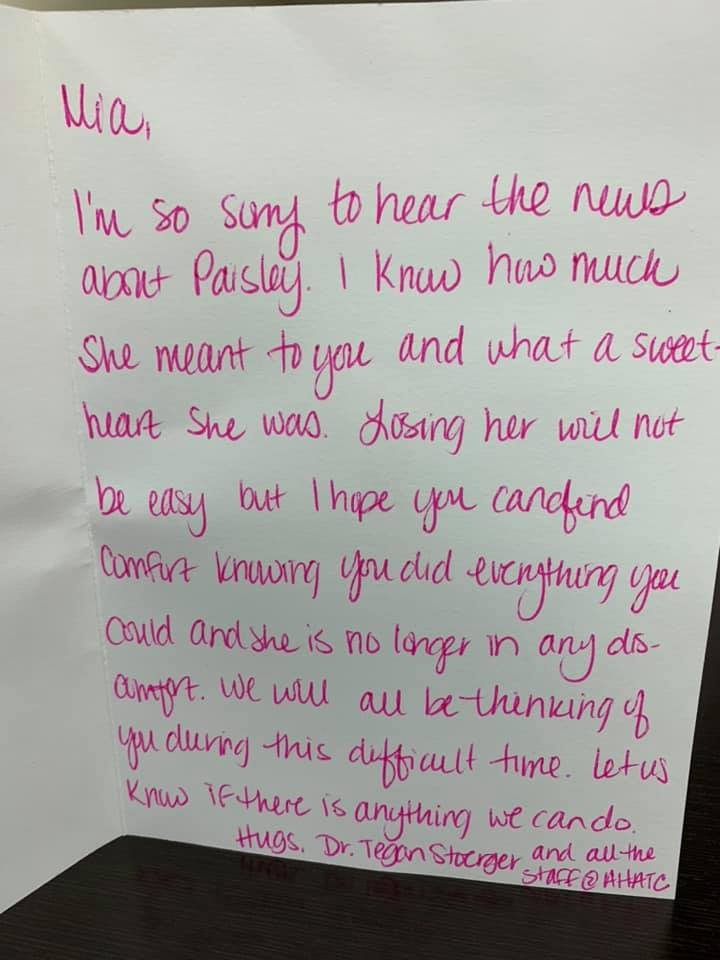 Mia,
I'm so sorry to hear the news
about Paisley. I know how much
she meant to you and what a sweet-
heart she was. Losing her will not
be easy but I hope you can find
comfort knowing you did everything you
could and she is no longer in any dis-
comfort. We will all be thinking of
you during this difficult time. Let us
know if there is anything we can do.
Hugs, Dr. Tegan Stoerger and all the
staff @ AHATC